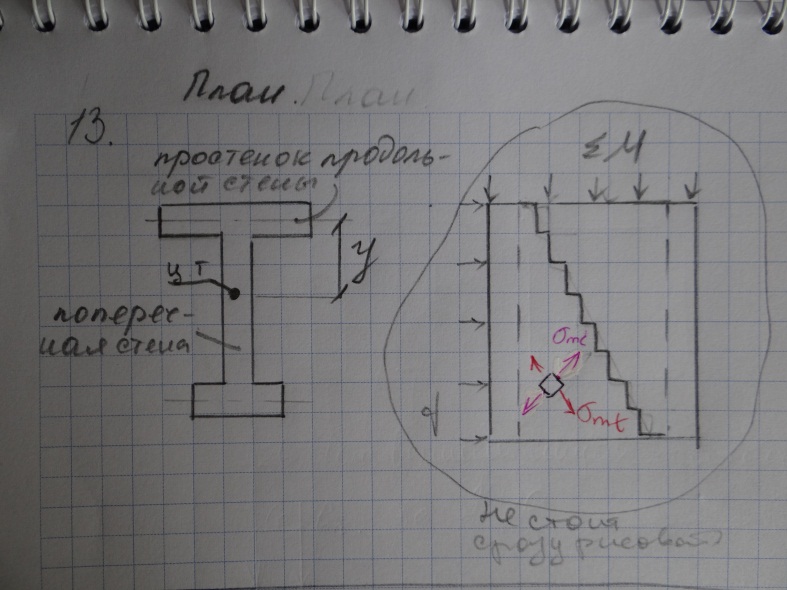 План. План
13.
простенок продоль-
ной стены
ΣM
ц т
y
попереч-
ная стена
σmt
q
Не стоит
сразу рисовать